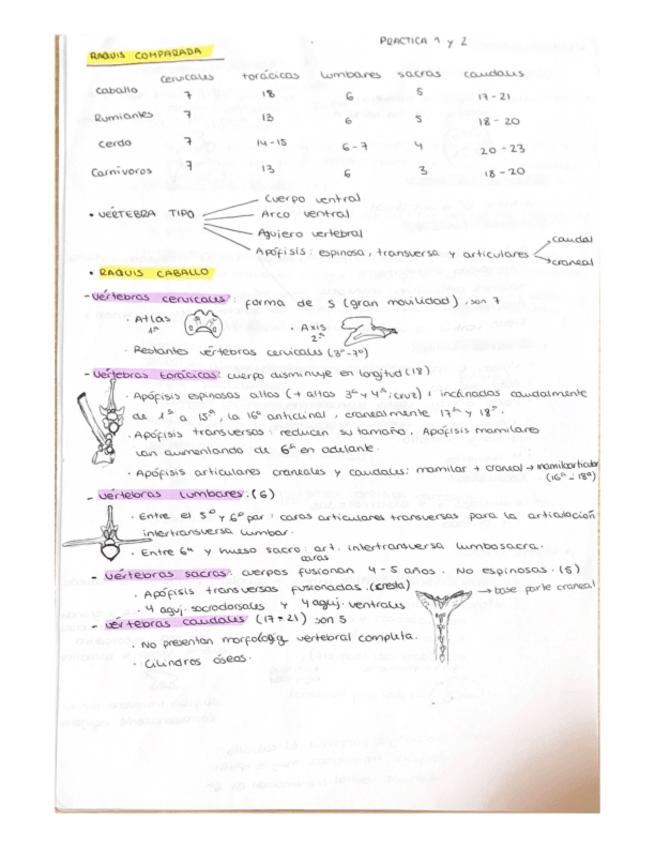 PRACTICA 1 y 2
RAQUIS COMPARADA
cervicales torácicas lumbares sacras caudales
caballo 7 18 6 5 17-21
Rumiantes 7 13 6 5 18-20
cerdo 7 14-15 6-7 4 20-23
Carnívoros 7 13 6 3 18-20
• VÉRTEBRA TIPO
Cuerpo ventral
Arco ventral
Agujero vertebral
Apófisis: espinosa, transversa y articulares
caudal
craneal
• RAQUIS CABALLO
- vértebras cervicales: forma de S (gran movilidad), son 7
· Atlas 1ª
· Axis 2ª
· Restantes vértebras cervicales (3ª-7ª)
- vértebras torácicas: cuerpo disminuye en longitud (18)
· Apófisis espinosas altas (+ altas 3ª y 4ª; cruz) : inclinadas caudalmente
de 1ª a 15ª, la 16ª anticlinal, cranealmente 17ª y 18ª.
· Apófisis transversas: reducen su tamaño. Apófisis mamilares
van aumentando de 6ª en adelante.
· Apófisis articulares craneales y caudales: mamilar + craneal → mamiloarticular
(16ª-18ª)
- vértebras lumbares: (6)
· Entre el 5º y 6º par: caras articulares transversas para la articulación
intertransversa lumbar.
· Entre 6ª y hueso sacro: art. intertransversa lumbosacra.
caras
- vértebras sacras: cuerpos fusionan 4-5 años. No espinosas. (5)
· Apófisis transversas fusionadas. (cresta)
→ base parte craneal
· 4 aguj. sacrodorsales y 4 aguj. ventrales
- vértebras caudales (17-21) son 5
· No presentan morfología vertebral completa.
· Cilindros óseos.